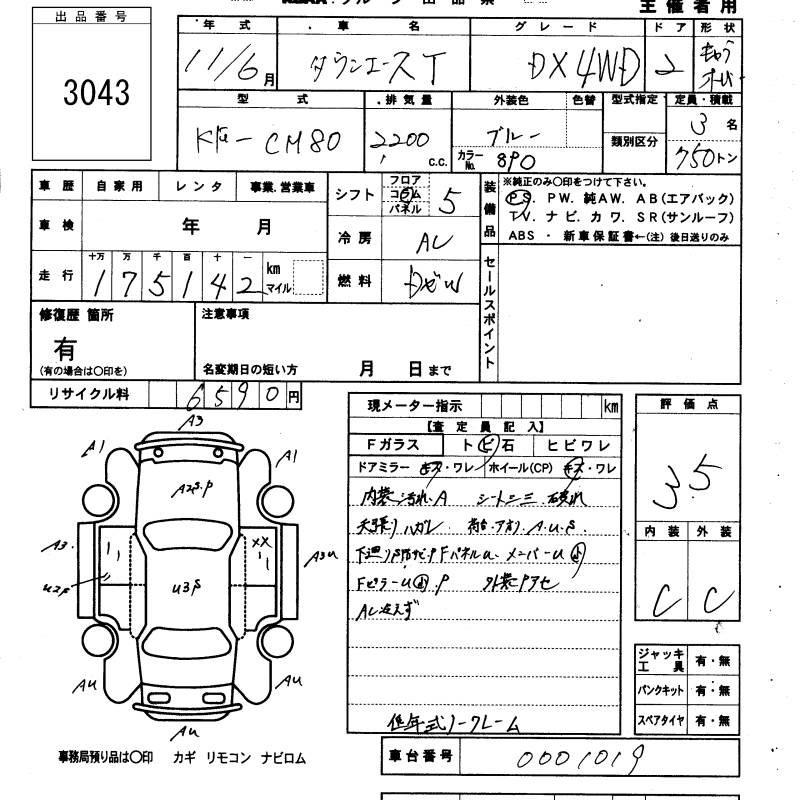 出品番号
3043
主催者用
年式 車名 グレード ドア 形状
11/6月 タウンエースT DX4WD 2
型式 排気量 外装色 色替 型式指定 定員・積載
CM80 2200 c.c. ブルー 3名
類別区分
カラーNo. 8P0 750トン
車歴 自家用 レンタ 事業、営業車
シフト フロア コラム パネル 5
装備品
※純正のみ〇印をつけて下さい。
PS. PW. 純AW. AB(エアバック)
TV. ナビ. カワ. SR(サンルーフ)
ABS ・ 新車保証書←(注) 後日送りのみ
車検 年 月
冷房 AC
走行 十万 万 千 百 十 一
175142 km マイル
燃料
セールスポイント
修復歴 箇所
有
(有の場合は〇印を)
注意事項
名変期日の短い方 月 日まで
リサイクル料 6590円
現メーター指示 km
【査定員記入】
Fガラス トビ石 ヒビワレ
ドアミラー キズ・ワレ ホイール(CP) キズ・ワレ
内装汚れ.A シート
天張りハガレ A.U.S.
下廻り Fパネルu. メンバーu
Fピラーu P
AC冷えず
低年式ノークレーム
評価点
3.5
内装 外装
C C
A3
A1
A1
A3
A3u
u3s
u2s
Au
Au
Au
ジャッキ工具 有・無
パンクキット 有・無
スペアタイヤ 有・無
事務局預り品は〇印 カギ リモコン ナビロム
車台番号 0001019